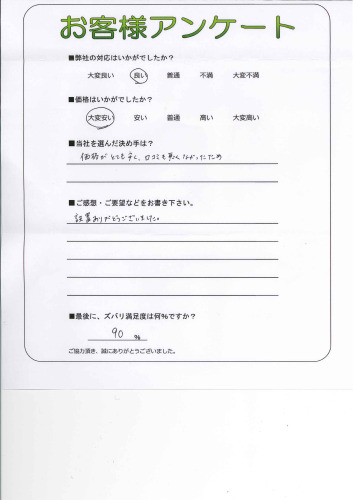 お客様アンケート
■弊社の対応はいかがでしたか?
大変良い 良い 普通 不満 大変不満
■価格はいかがでしたか?
大変安い 安い 普通 高い 大変高い
■当社を選んだ決め手は?
価格がとても安く、口コミも悪くなかったため
■ご感想・ご要望などをお書き下さい。
設置ありがとうございました。
■最後に、ズバリ満足度は何%ですか?
90 %
ご協力頂き、誠にありがとうございました。